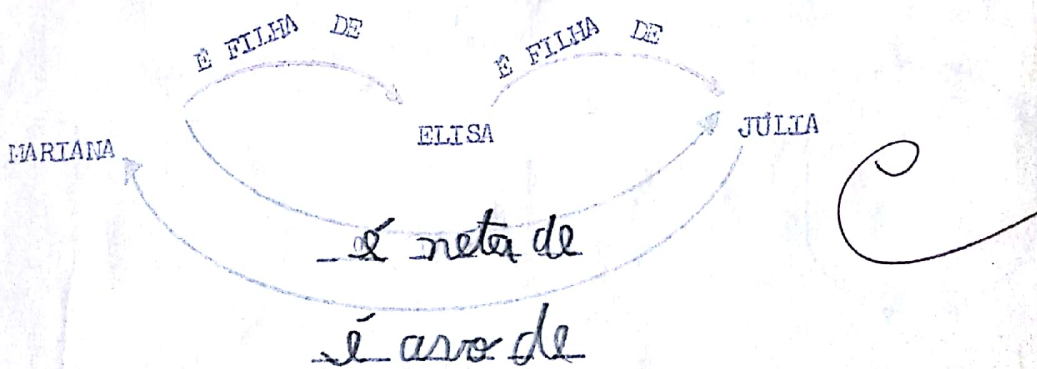 E FILHA DE
E FILHA DE
MARIANA
ELISA
JÚLIA
é neta de
é avo de